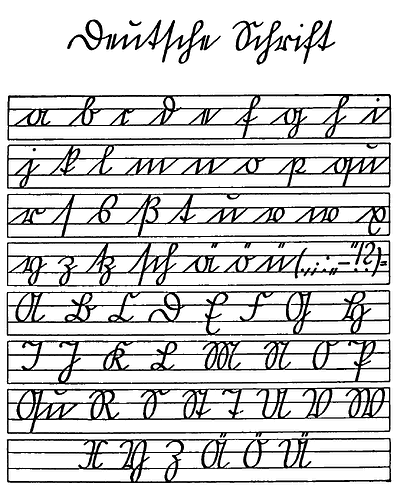 Deutſche Schrift
a b c d e f g h i
j k l m n o p qu
r ſ s ß t u v w x
y z tz ſch ä ö ü (.,;:„–“!?)=
A B C D E F G H
I J K L M N O P
Qu R S St T U V W
X Y Z Ä Ö Ü